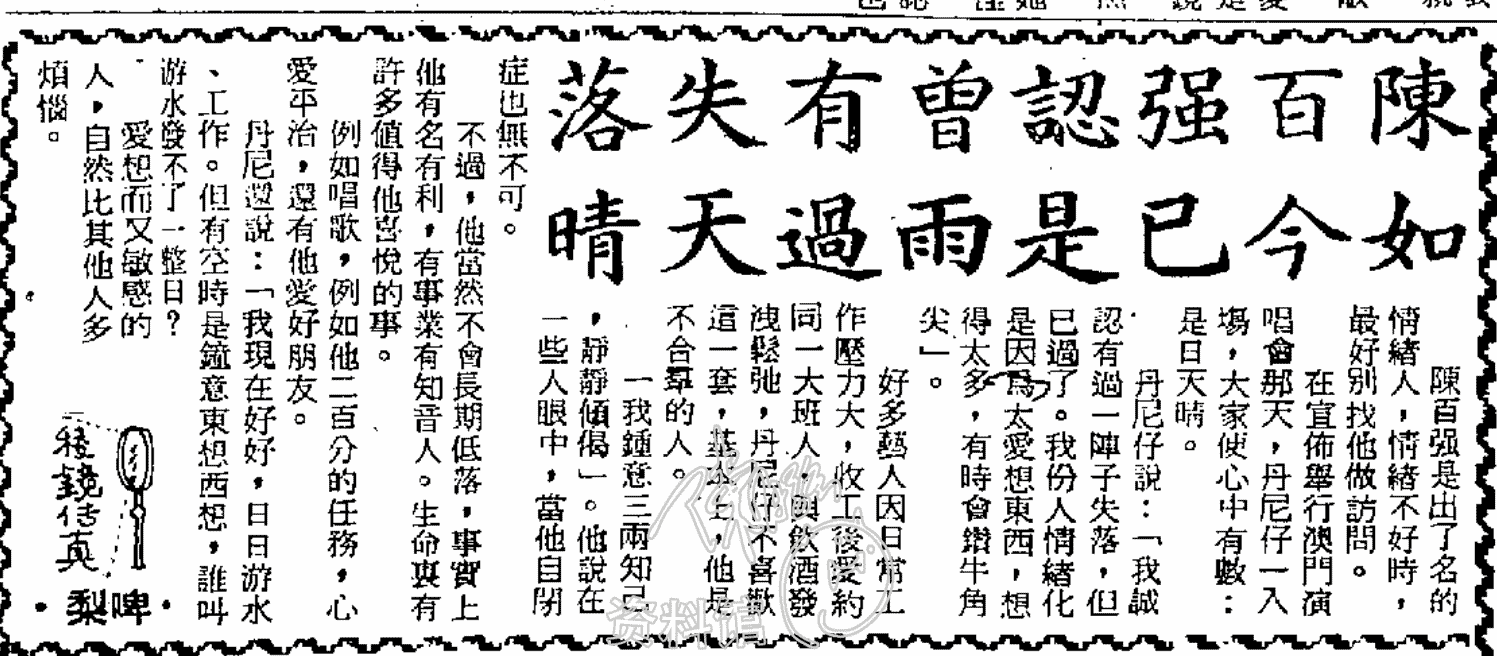 陳百强認曾有失落
如今已是雨過天晴
陳百强是出了名的
情緒人，情緒不好時，
最好別找他做訪問。
在宣佈舉行澳門演
唱會那天，丹尼仔一入
塲，大家便心中有數：
是日天晴。
丹尼仔說：「我誠
認有過一陣子失落，但
已過了。我份人情緒化
是因爲太愛想東西，想
得太多，有時會鑽牛角
尖」。
好多藝人因日常工
作壓力大，收工後愛約
同一大班人，與飲酒發
洩鬆弛，丹尼仔不喜歡
這一套，基本上，他是
不合羣的人。
「我鍾意三兩知己
，靜靜傾偈」。他說在
一些人眼中，當他自閉
症也無不可。
不過，他當然不會長期低落，事實上
他有名有利，有事業有知音人。生命裏有
許多値得他喜悅的事。
例如唱歌，例如他二百分的任務，心
愛平治，還有他愛好朋友。
丹尼還說：「我現在好好，日日游水
、工作。但有空時是鐘意東想西想，誰叫
游水發不了一整日？
愛想而又敏感的
人，自然比其他人多
煩惱。
後鏡傳真
·啤梨·
资料馆